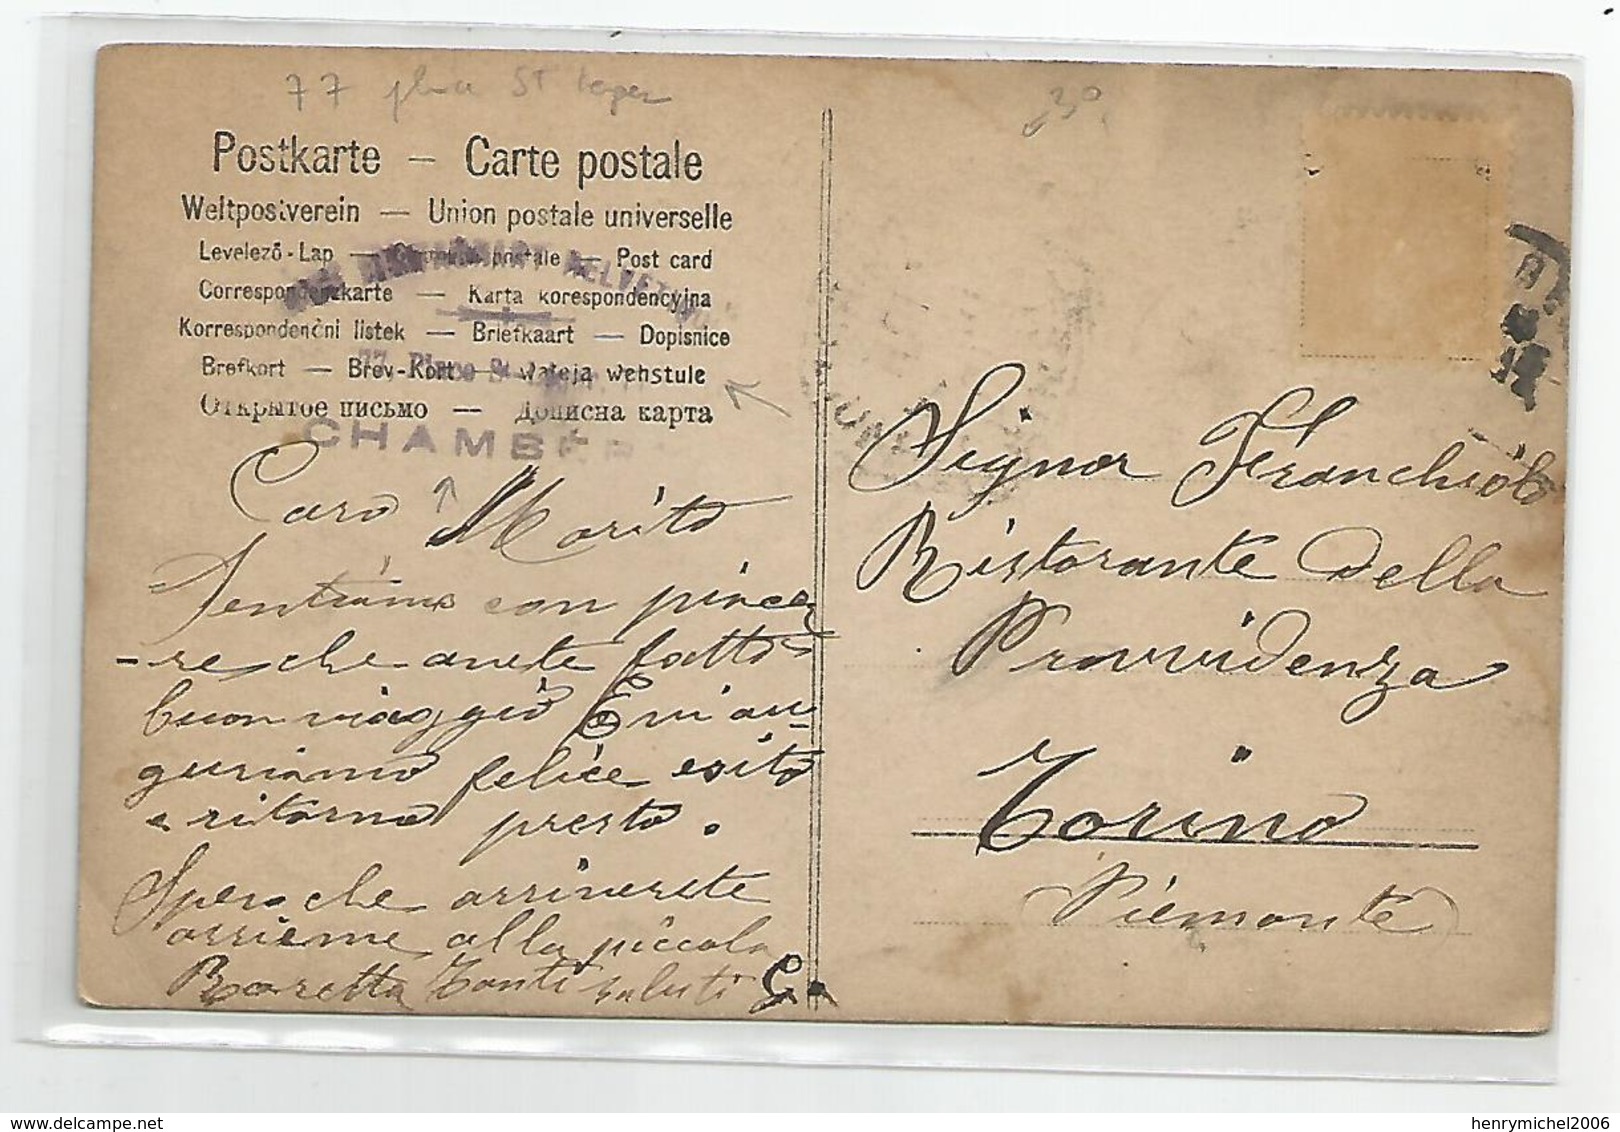 77 place St
30
Postkarte — Carte postale
Weltpostverein — Union postale universelle
Levelező-Lap — postale — Post card
Correspondenzkarte — Karta korespondencyjna
Korrespondenčni listek — Briefkaart — Dopisnice
Brefkort — Brev-Kort — wateja wehstule
Открытое письмо — Дописна карта
RESTAURANT HELVETIQUE
77, Place St
CHAMBÉR
Caro Marito
Sentiamo con piace
-re che avete fatto
buon viaggio E vi au-
guriamo felice esito
e ritorno presto.
Spero che arriverete
assieme alla piccola
Baretta Tanti saluti G.
Signor Franchiolo
Ristorante della
Provvidenza
Torino
Piemonte
henrymichel2006